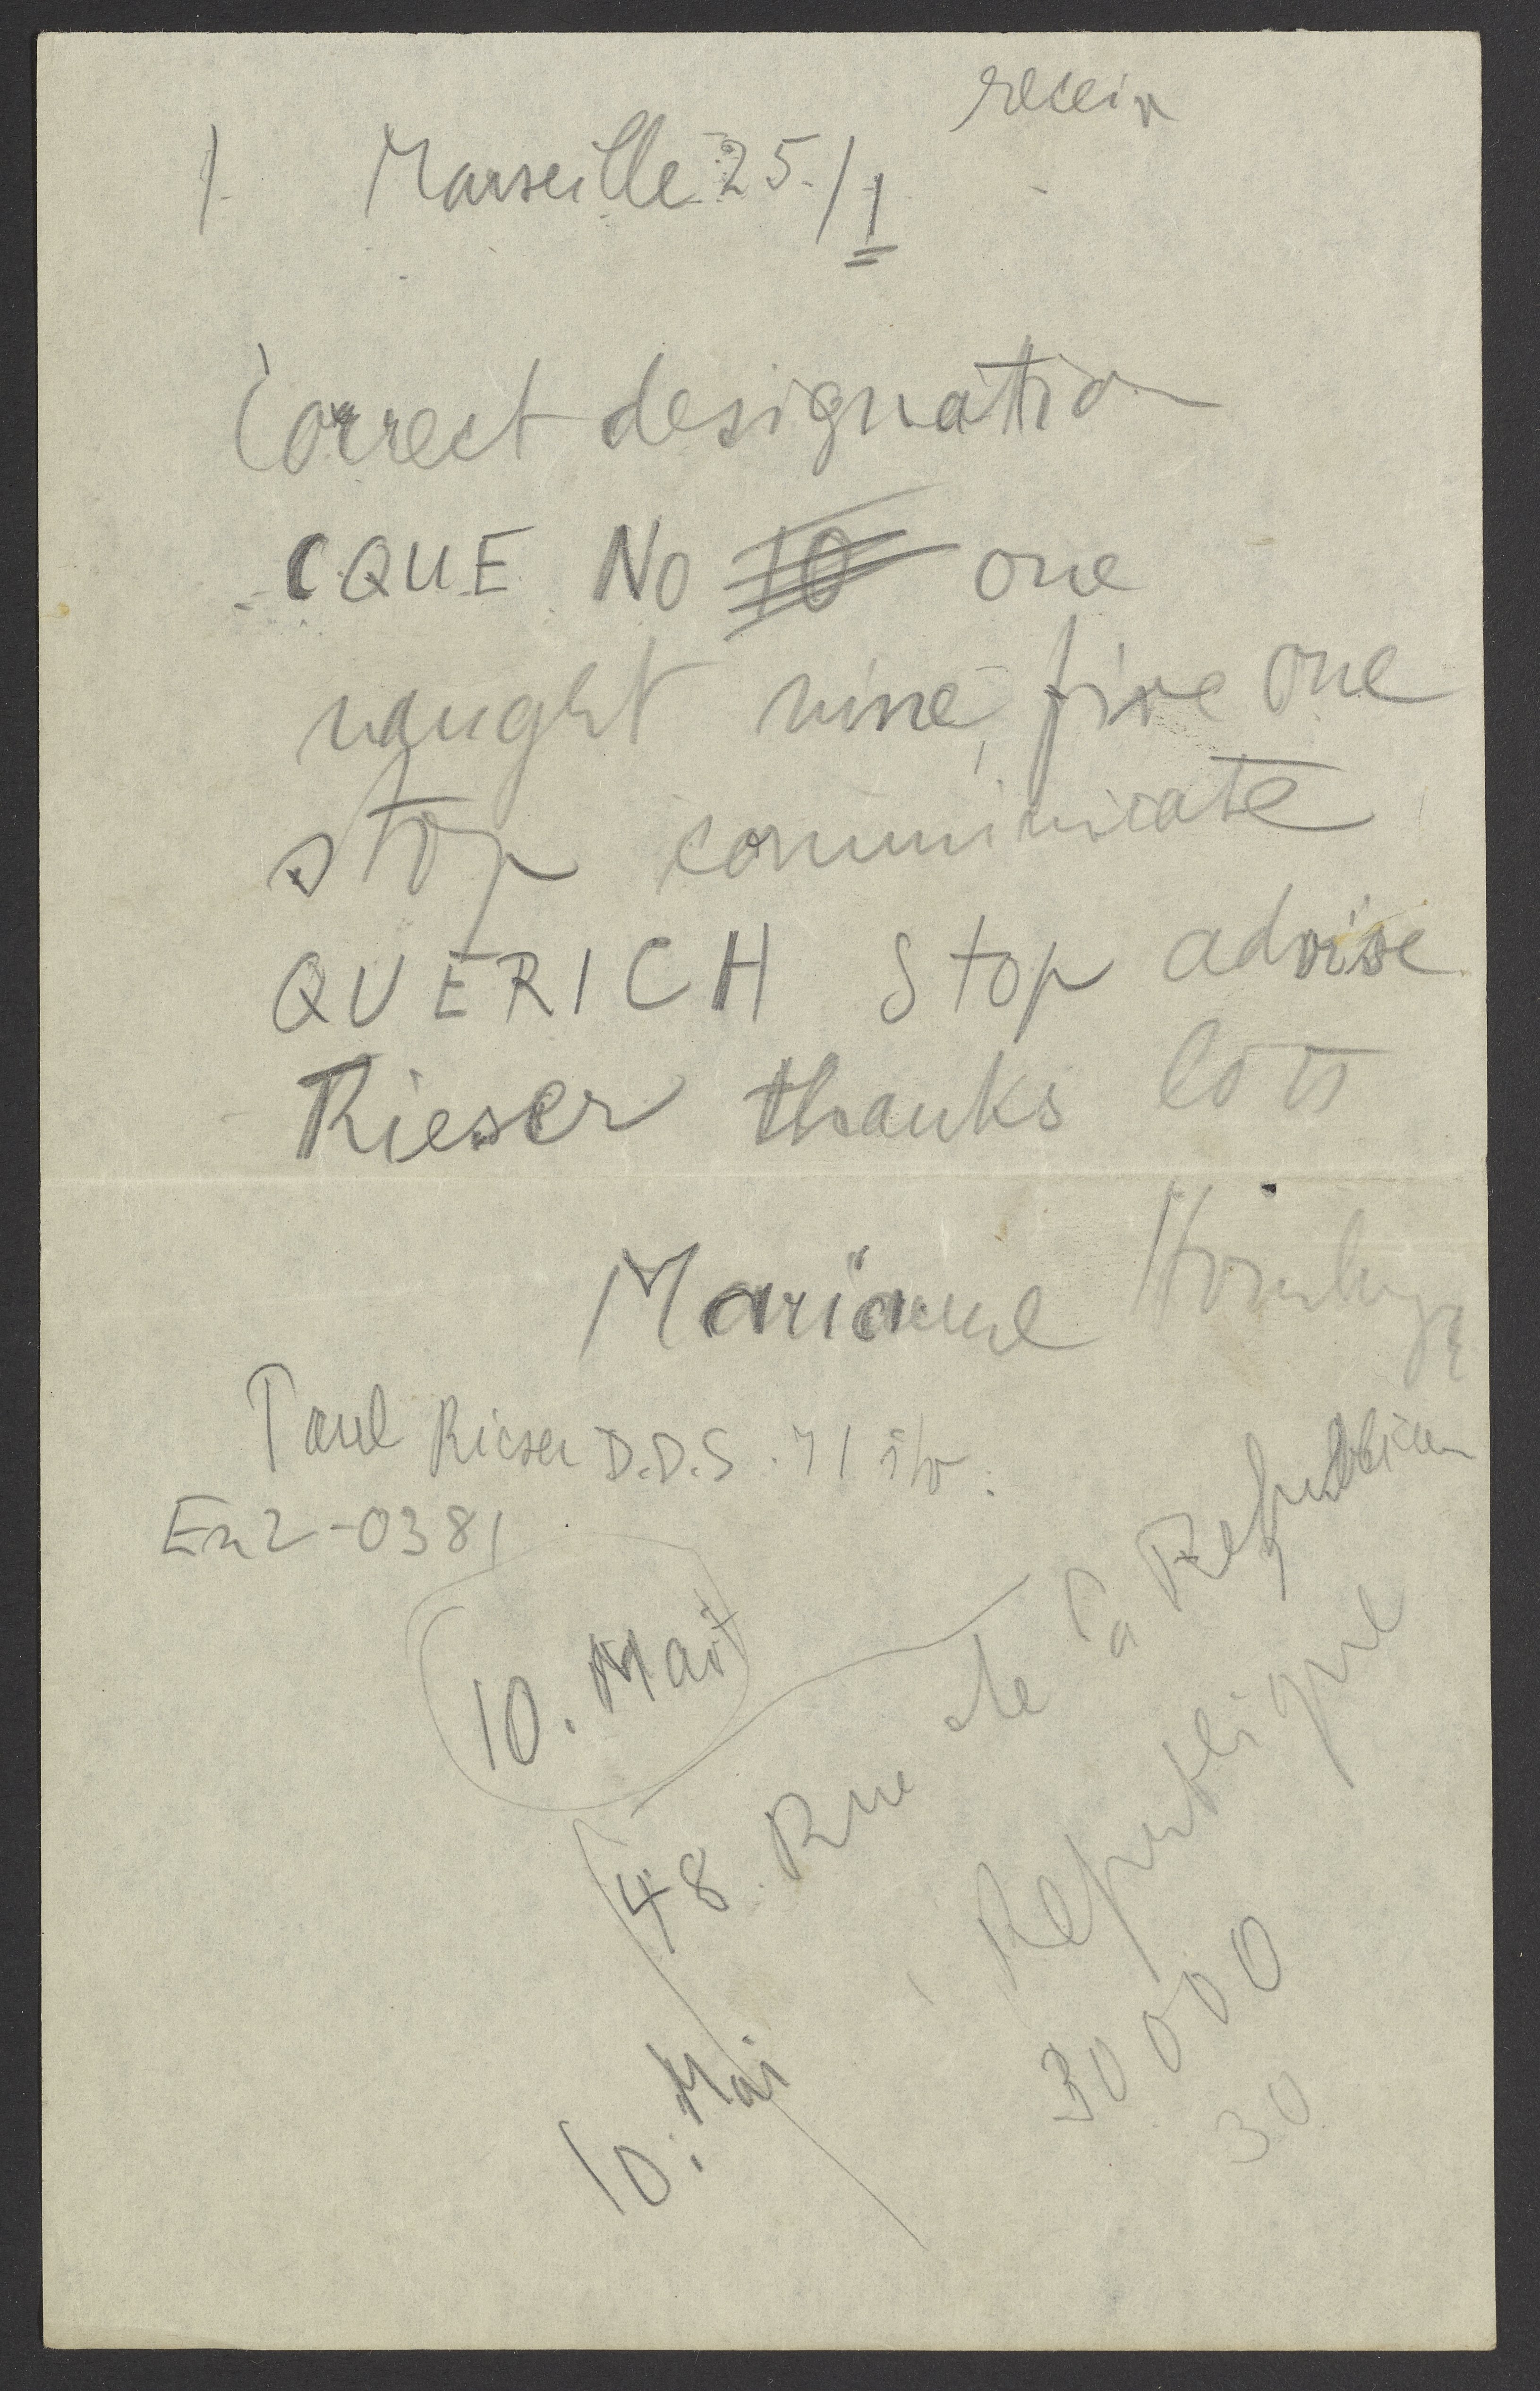 recein
1. Marseille 25./1
Correct designation
CQUE No 10 one
naught nine, five one
stop communicate
QUERICH Stop advise
Rieser thanks lots
Marianne
Paul Rieser D.D.S. 71 str.
En2-0381
10. Mai
48. Rue de la Republican
Republique
30000
30
10. Mai